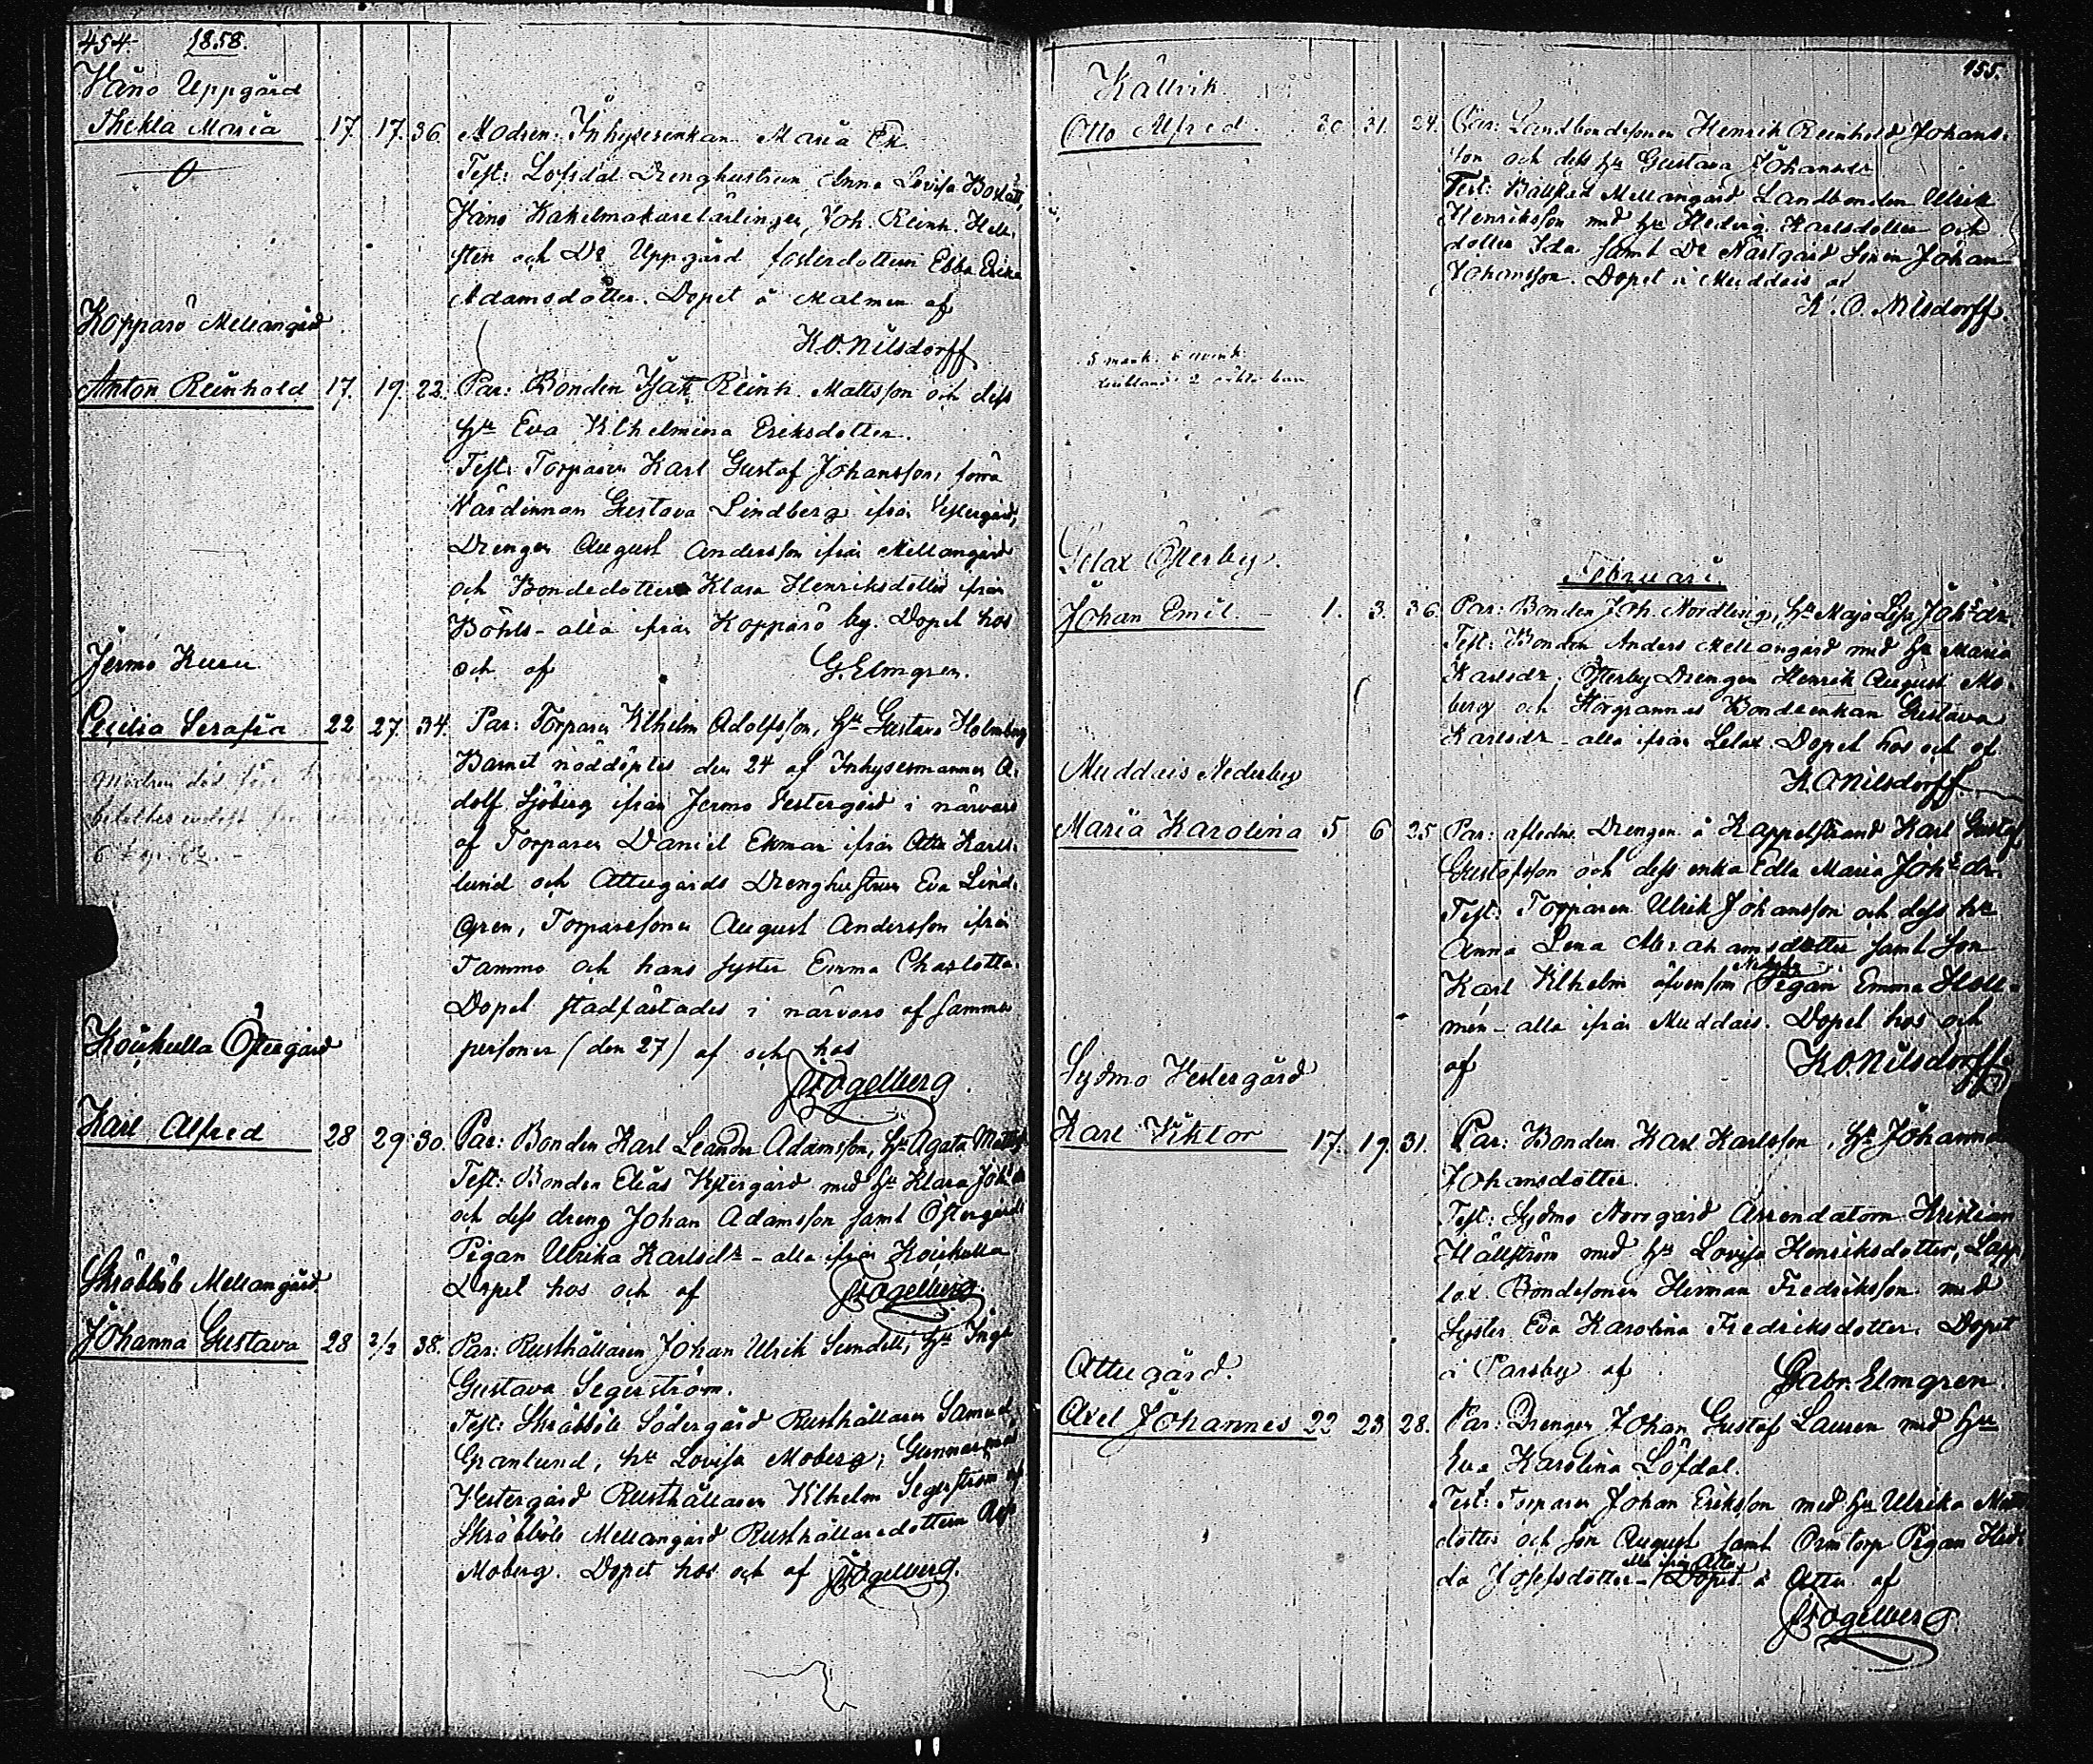 454. 1858.
Våno Uppgård
Thekla Maria 17. 17. 36. Modren: Inhysesenkan Maria Ek.
Test: Lofsdal Drenghustrun Anna Lovisa
Våno Kakelmakarelärlingen Joh. Reinh. Hell-
sten och Do Uppgård fosterdottern Ebba Erika
Adamsdotter. Döpet å Malmen af
K.O. Nilsdorff
Kopparö Mellangård
Anton Reinhold 17. 19. 22. Par: Bonden Isak Reinh. Mattsson och dess
hu Eva Vilhelmina Eriksdotter.
Test: Torparen Karl Gustaf Johansson, förra
Värdinnan Gustava Lindberg ifrån Vestergård,
Drengen August Andersson ifrån Mellangård
och Bondedottern Klara Henriksdotter från
Böhls - alla ifrån Kopparö by. Döpet hos
och af G. Elmgren.
Jermo Kuru
Cecilia Serafia 22 27. 34. Par: Torparen Vilhelm Adolfsson, hu Gustava Holmberg
Barnet nöddöptes den 24 af Inhysesmannen A-
dolf Sjöberg ifrån Jermo Vestergård i närvaro
af Torparen Daniel Ekman ifrån Attu Karls-
lund och Attugårds Drenghustrun Eva Lind-
gren, Torparesonen August Andersson ifrån
Tammo och hans syster Emma Charlotta.
Döpet stadfästades i närvaro af samma
personer (den 27) af och hos
Fogelberg.
Modren död före
Koukulla Östergård
Karl Alfred 28 29 30. Par: Bonden Karl Leander Adamsson, hu Agata
Test: Bonden Elias Vestergård med hu Klara
och dess dreng Johan Adamsson samt Östergårds
Pigan Ulrika Karlsdr - alla ifrån Koukulla
Döpet hos och af Fogelberg.
Skräbböle Mellangård
Johanna Gustava 28 2/2 38. Par: Rusthållaren Johan Ulrik Sundell, hu
Gustava Segerström.
Test: Skräbböle Södergård Rusthållaren Samuel
Granlund, hu Lovisa Moberg; Gunnarsnäs
Vestergård Rusthållaren Vilhelm Segerström
Skräbböle Mellangård Rusthållaredottern
Moberg. Döpet hos och af Fogelberg.
455.
Källvik
Otto Alfred. 30. 31. 24. Par: Landbondesonen Henrik Reinhold Johans-
son och dess hu Gustava Johansdr
Test: Mellangård Landbonden Ulrik
Henriksson med hu Hedvig Karlsdotter och
dotter Ida samt Do Nästgård Sonen Johan
Johansson. Döpet i Muddais af
K.O. Nilsdorff.
5 mank. 6 qvink.
deribland 2 oäkta barn
Februari.
Lelax Österby.
Johan Emil. 1. 3. 36. Par: Bonden Joh. Nordberg, hu Maja Lisa Johsdr.
Test: Bonden Anders Mellangård med hu Maria
Karlsdr, Österby Drengen Henrik August Mo-
berg och Storgrannes Bondeenkan Gustava
Karlsdr - alla ifrån Lelax. Döpet hos och af
K.O. Nilsdorff.
Muddais Nederby
Maria Karolina 5 6 25 Par: afledne Drengen å Kappelstrand Karl Gustaf
Gustafsson och dess enka Edla Maria Johsdr.
Test: Torparen Ulrik Johansson och dess hu
Anna Lena Abrahamsdotter samt son
Karl Vilhelm äfvensom Nederby Pigan Emma Holl-
mén - alla ifrån Muddais. Döpet hos och
af K.O. Nilsdorff.
Sydmo Vestergård
Karl Viktor 17. 19. 31. Par: Bonden Karl Karlsson, hu Johanna
Johansdotter.
Test: Sydmo Norrgård Arrendatorn Kristian
Hällström med hu Lovisa Henriksdotter, Lapp-
lax Bondesonen Herman Fredriksson med
Syster Eva Karolina Fredriksdotter. Döpet
i Parsby af Gabr. Elmgren.
Attugård.
Axel Johannes 22 23 28. Par: Drengen Johan Gustaf Lauren med hu
Eva Karolina Löfdal.
Test: Torparen Johan Eriksson med hu Ulrika
dotter och son August samt Ormtorp Pigan Hed-
da Josefsdotter - alla ifrån Attu. Döpet å Attu af
Fogelberg.